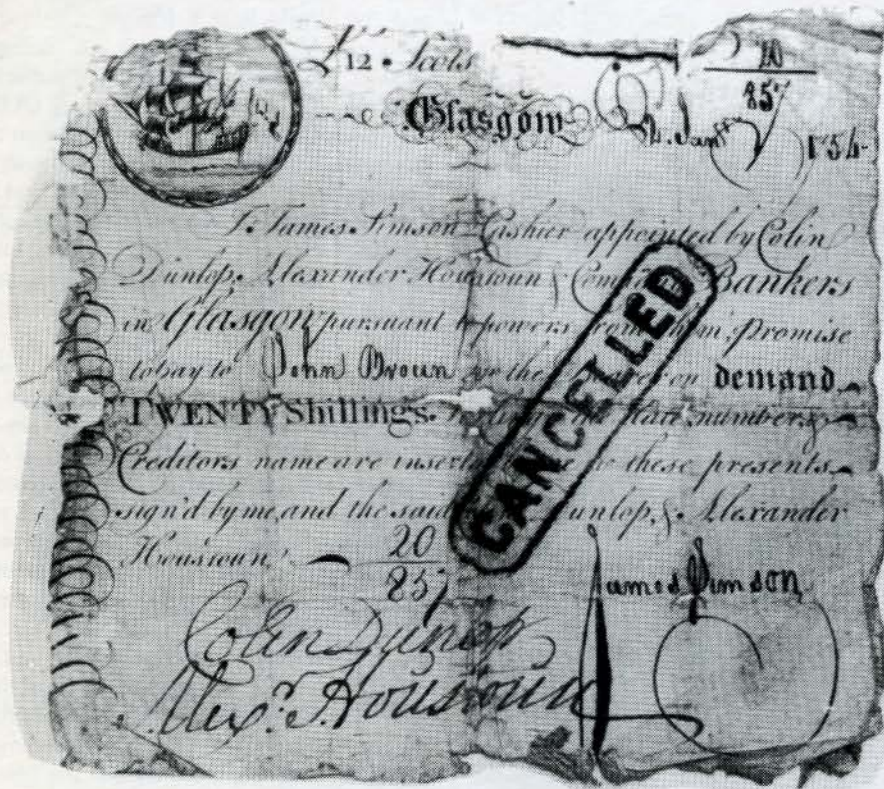 £12 • Scots
20
857
Glasgow 2. Jany 1754
I, James Simson Cashier appointed by Colin
Dunlop, Alexander Houstoun & Bankers
in Glasgow pursuant to powers from them, Promise
to pay to John Broun or the on demand
TWENTY Shillings. number &
Creditors name are these presents
sign'd by me, and the said Dunlop, & Alexander
Houstoun,
20
857
James Simson
Colin Dunlop
Alexr. Houstoun
CANCELLED